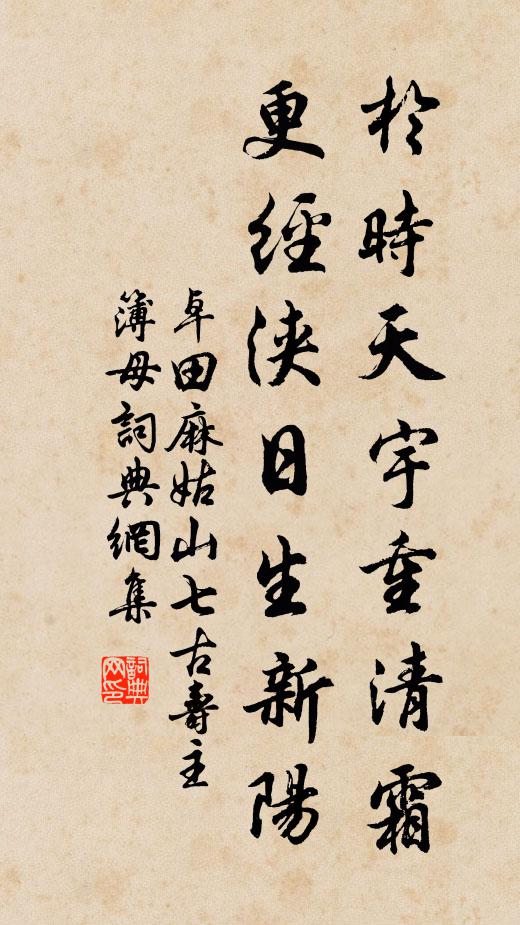 於時天宇重清霜
更經浹日生新陽
卓田麻姑山七古壽主
簿母詞典網集
詞典
网印